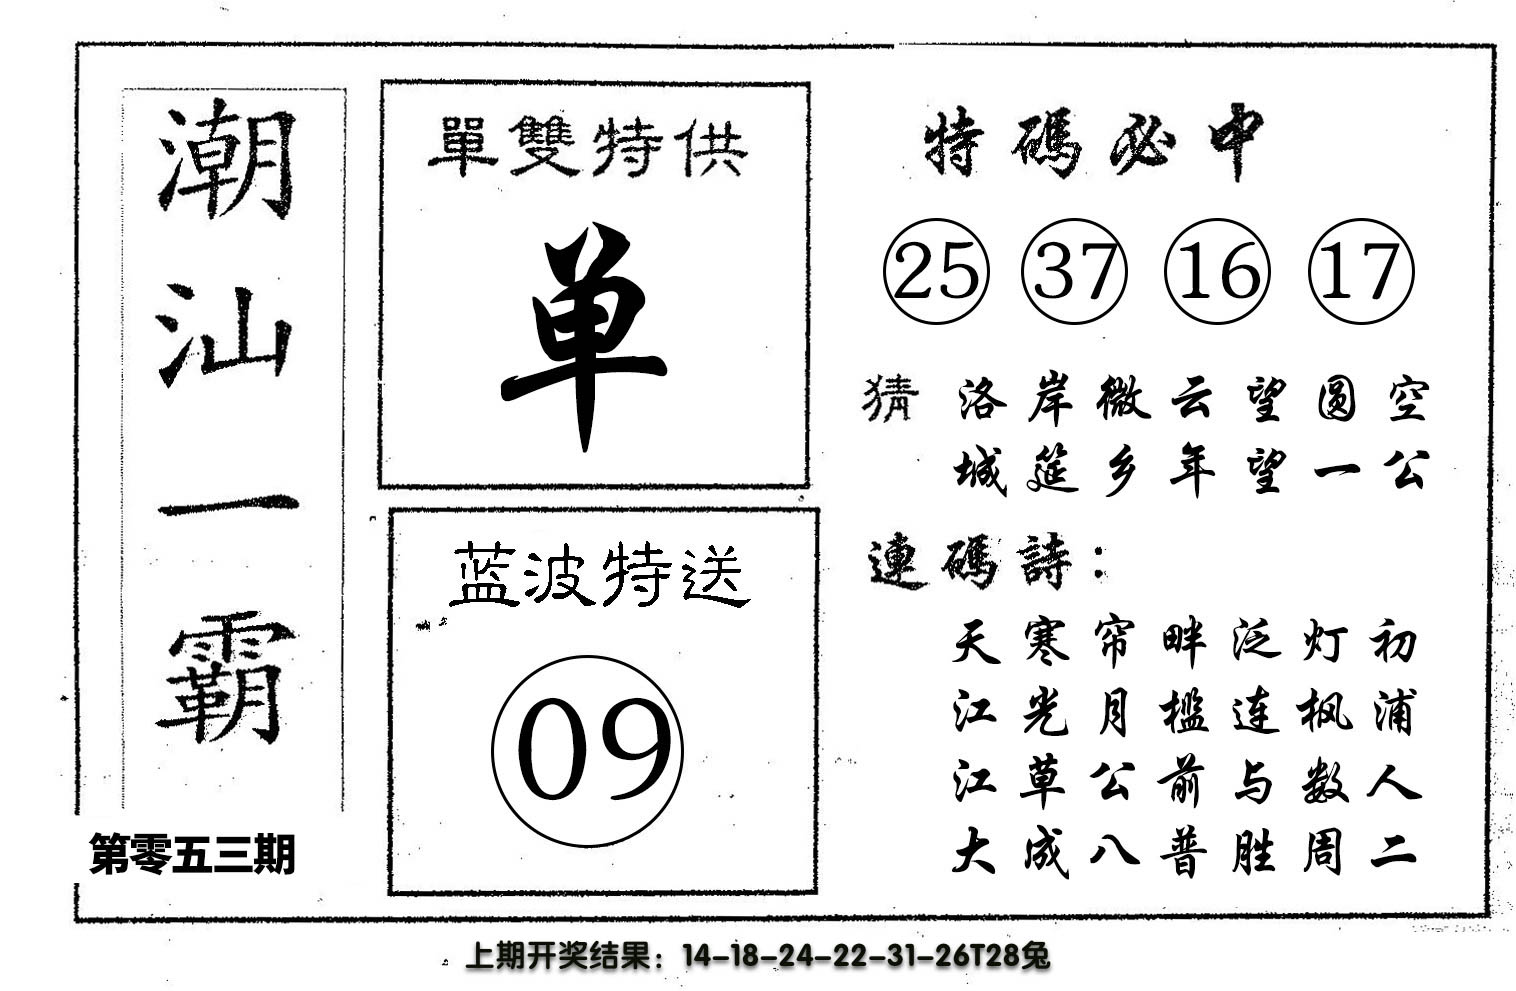 潮汕一霸
第零五三期
單雙特供
单
蓝波特送
09
特碼必中
25 37 16 17
猜 洛岸微云望圆空
城筵乡年望一公
連碼詩：
天寒帘畔泛灯初
江光月槛连枫浦
江草公前与数人
大成八普胜周二
上期开奖结果：14-18-24-22-31-26T28兔